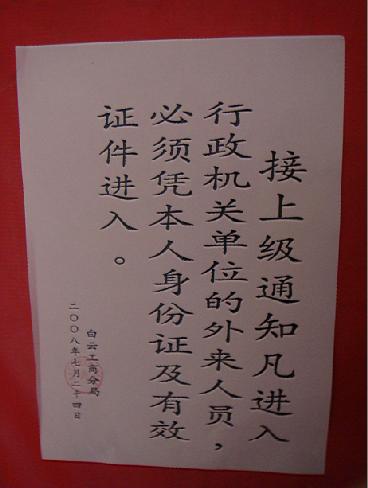 接上级通知凡进入
行政机关单位的外来人员，
必须凭本人身份证及有效
证件进入。
白云工商分局
二〇〇八年七月二十四日